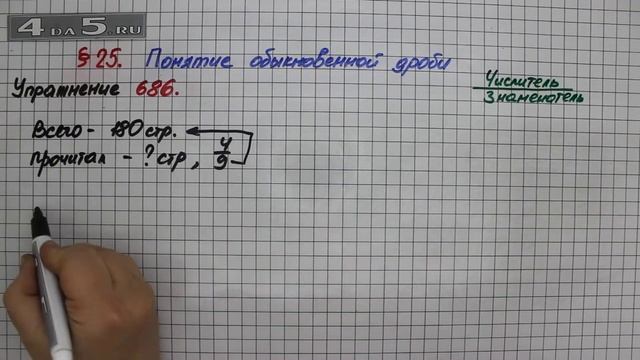 4DA5.RU
§ 25. Понятие обыкновенной дроби
Упражнение 686.
Числитель
Знаменатель
Всего - 180 стр.
Прочитал - ? стр, 4/9